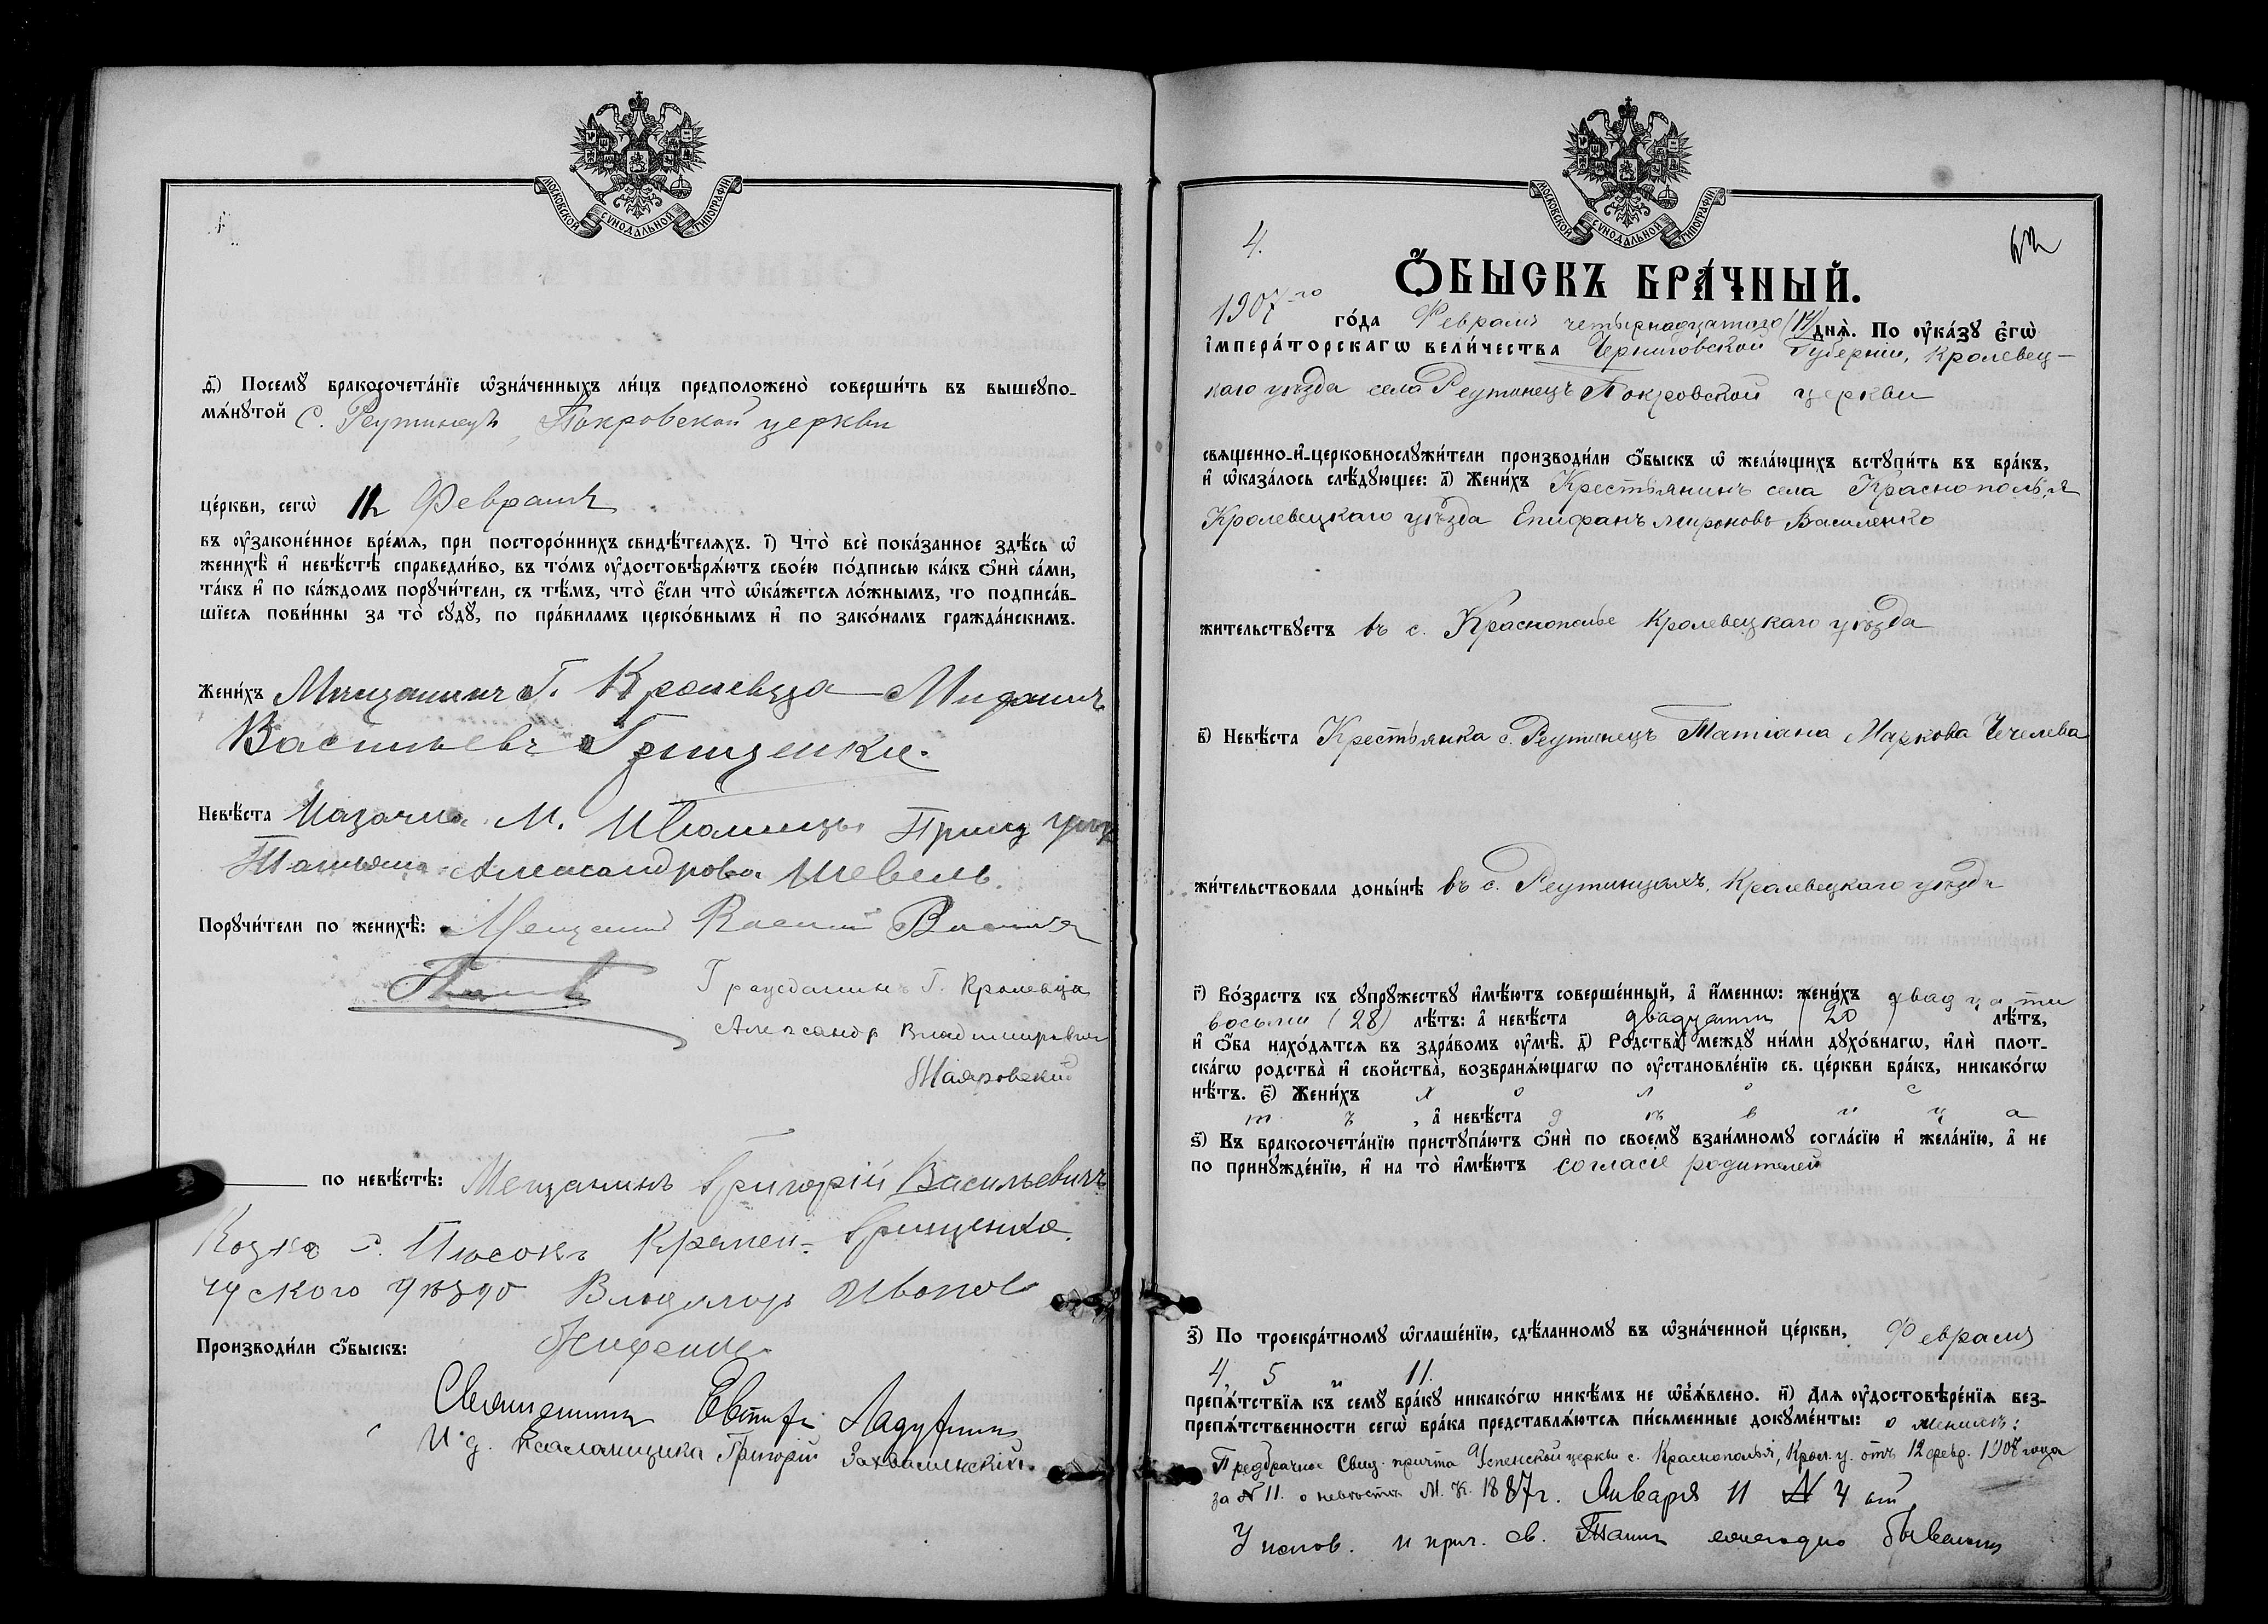 МОСКОВСКОЙ СУНОДАЛЬНОЙ ТИПОГРАФІИ.
ѳ҃) Посемꙋ бракосочета́нїе ѡ҆зна́ченныхъ ли́цъ предположено̀ соверши́ть въ вышеꙋпо-
мѧ́нꙋтой с. Реутинецъ, Покровской церкви
це́ркви, сегѡ̀ 12 Февраля
въ ᲂу҆законе́нное вре́мѧ, при посторо́ннихъ свидѣ́телѧхъ. і҃) Что̀ всѐ пока́занное здѣ́сь ѡ҆
женихѣ̀ и҆ невѣ́стѣ справедли́во, въ то́мъ ᲂу҆достовѣрѧ́ютъ свое́ю по́дписью ка́къ ѻ҆нѝ са́ми,
та́къ и҆ по ка́ждомъ порꙋчи́тели, съ тѣ́мъ, что̀ є҆́сли что̀ ѡ҆ка́жетсѧ ло́жнымъ, то подписа́в-
шїесѧ пови́нны за то̀ сꙋдꙋ̀, по пра́виламъ церко́внымъ и҆ по зако́намъ гражда́нскимъ.
Жени́хъ Мѣщанинъ Г. Кролевца
Васильевъ Грищенко.
Невѣ́ста Казачка М.
Александрова Шевель.
Порꙋчи́тели по женихѣ̀: Мещанин
Гражданинъ Г. Кролевца
Александр Владимирович
Маяровский
по невѣ́стѣ: Мещанинъ Григорій Васильевичъ
Грищенко.
Козакъ с. Пюсокъ Кремен-
чуского уѣздо Владимир Иванов
Производи́ли ѻ҆́быскъ:
Священникъ Евтихій
И. д. псаломщика Григорій
МОСКОВСКОЙ СУНОДАЛЬНОЙ ТИПОГРАФІИ.
4.
Ѻ҆́БЫСКЪ БРА́ЧНЫЙ.
1907-го го́да Февраля четырнадцатаго (14) днѧ̀. По ᲂу҆ка́зꙋ є҆гѡ̀
і҆мпера́торскагѡ вели́чества Черниговской Губерніи, Кролевец-
каго уѣзда села Реутинецъ Покровской церкви
свѧщенно-и҆-церковнослꙋжи́тели производи́ли ѻ҆́быскъ ѡ҆ жела́ющихъ встꙋпи́ть въ бра́къ,
и҆ ѡ҆каза́лось слѣ́дꙋющее: а҃) Жени́хъ Крестьянинъ села Краснополья
Кролевецкаго уѣзда Епифанъ Мироновъ Василенко
жи́тельствꙋетъ въ с. Краснополье Кролевецкаго уѣзда
в҃) Невѣ́ста Крестьянка с. Реутинецъ Татіана Маркова Чечелева
жи́тельствовала доны́нѣ въ с. Реутинцахъ, Кролевецкаго уѣзда
г҃) Во́зрастъ къ сꙋпрꙋ́жествꙋ и҆мѣ́ютъ соверше́нный, а҆ и҆́менно: жени́хъ двадцати
восьми (28) лѣ́тъ: а҆ невѣ́ста двадцати (20) лѣ́тъ,
и҆ ѻ҆́ба нахо́дѧтсѧ въ здра́вомъ ᲂу҆мѣ̀. д҃) Родства̀ междꙋ̀ ни́ми дꙋхо́внагѡ, и҆лѝ плот-
ска́гѡ родства̀ и҆ сво́йства, возбранѧ́ющагѡ по ᲂу҆становле́нїю св. це́ркви бра́къ, никако́гѡ
нѣ́тъ. є҃) Жени́хъ холос
тъ, а҆ невѣ́ста дѣвица
ѕ҃) Къ бракосочета́нїю пристꙋпа́ютъ ѻ҆нѝ по своемꙋ̀ взаи́мномꙋ согла́сїю и҆ жела́нїю, а҆ не
по принꙋжде́нїю, и҆ на то̀ и҆мѣ́ютъ согласіе родителей
з҃) По троекра́тномꙋ ѡ҆глаше́нїю, сдѣ́ланномꙋ въ ѡ҆зна́ченной це́ркви, Февраля
4, 5 и 11.
препѧ́тствїѧ къ семꙋ̀ бра́кꙋ никако́гѡ никѣ́мъ не ѡ҆б̾ѧ́влено. и҃) Длѧ ᲂу҆достовѣре́нїѧ без-
препѧ́тственности сегѡ̀ бра́ка представлѧ́ютсѧ пи́сьменные докꙋме́нты: о женихѣ:
Предбрачное Свид. причта Успенской церкви с. Краснополья, Крол. у. отъ 12 февр. 1907 года
за № 11. о невѣстѣ М. К. 1887 г. Января 11 № 4
У испов. и прич. св. Таинъ ежегодно бывали